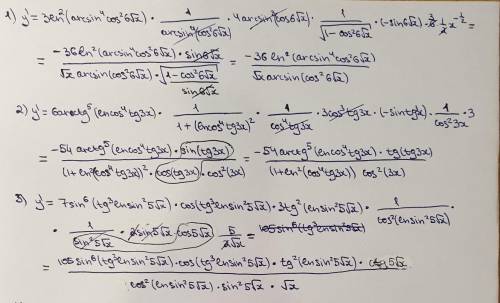 1) y' = 3ln²(arcsin⁴cos²6√x) · 1/(arcsin⁴(cos²6√x)) · 4arcsin³cos²6√x · 1/√(1-cos²6√x) · (-sin6√x) · 6 · 1/2 x^(-1/2) =
= (-36ln²(arcsin⁴cos²6√x) · sin6√x)/(√x arcsin(cos²6√x) · √(1-cos²6√x)) = (-36 ln²(arcsin⁴cos²6√x))/(√x arcsin(cos²6√x))
sin6√x
2) y' = 6arctg⁵(lncos⁴tg3x) · 1/(1+(lncos⁴tg3x)²) · 1/(cos⁴tg3x) · 3cos³tg3x · (-sintg3x) · 1/(cos²3x) · 3
= (-54arctg⁵(lncos⁴tg3x) · sin(tg3x))/((1+ln²(cos⁴tg3x)) · cos(tg3x) · cos²(3x)) = (-54arctg⁵(lncos⁴tg3x) · tg(tg3x))/((1+ln²(cos⁴tg3x)) cos²(3x))
3) y' = 7sin⁶(tg³lnsin²5√x) · cos(tg³lnsin²5√x) · 3tg²(lnsin²5√x) · 1/(cos²(lnsin²5√x)) ·
· 1/(sin²5√x) · 2sin5√x · cos5√x · 5/(2√x) =
= (105sin⁶(tg³lnsin²5√x) · cos(tg³lnsin²5√x) · tg²(lnsin²5√x) · ctg5√x)/(cos²(lnsin²5√x) · sin²5√x · √x)